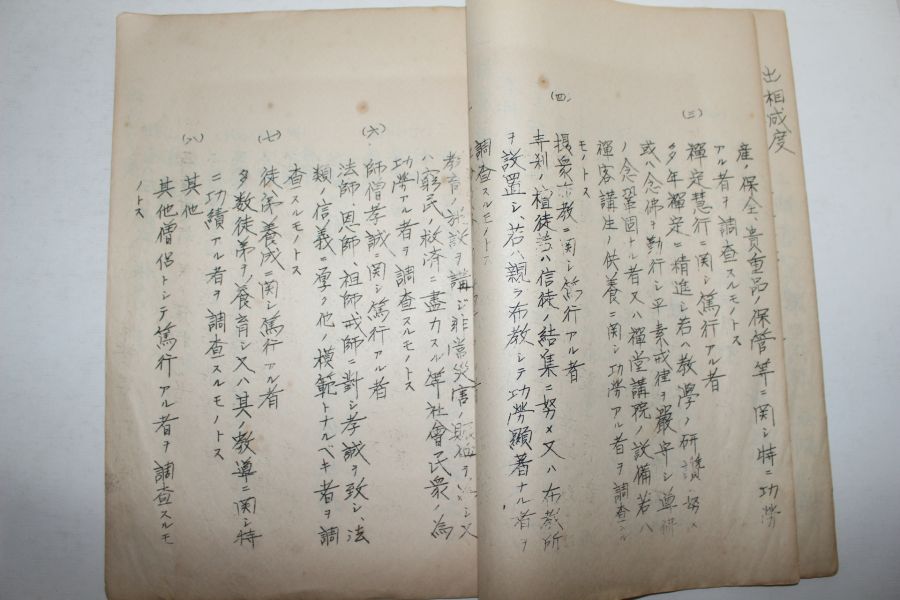 出相成度
産ノ保全、貴重品ノ保管等ニ関シ特ニ功労
アル者ヲ調査スルモノトス
(三)
禅定慧行ニ関シ篤行アル者
多年禅定ニ精進シ若ハ教学ノ研 努メ
或ハ念佛ヲ勤行シ平素戒律ヲ嚴守シ
ノ念鞏固ナル者又ハ禪堂講院ノ設備若ハ
禪客講生ノ供養ニ関シ功勞アル者ヲ調査スル
モノトス
(四)
攝衆 教ニ関シ篤行アル者
寺刹ノ檀徒 ハ信徒ノ結集ニ努メ又ハ布教所
ヲ設置シ、若ハ親ラ布教シテ功勞顯著ナル者ヲ
調査スルモノトス
教育ノ施設ヲ講ジ非常災害ノ シ又
ハ窮民ノ救済ニ盡力スル等社會民衆ノ為
功勞アル者ヲ調査スルモノトス
(六)
師僧孝誠ニ関シ篤行アル者
法師、恩師、祖師戒師ニ對シ孝誠ヲ致シ、法
類ノ信ノ義ニ厚ク他ノ模範トナルベキ者ヲ調
査スルモノトス
(七)
徒弟養成ニ関シ篤行アル者
多数徒弟ヲ養育シ又ハ其ノ教導ニ関シ特
ニ功績アル者ヲ調査スルモノトス
(八)
其他
其他僧侶トシテ篤行アル者ヲ調査スルモ
ノトス